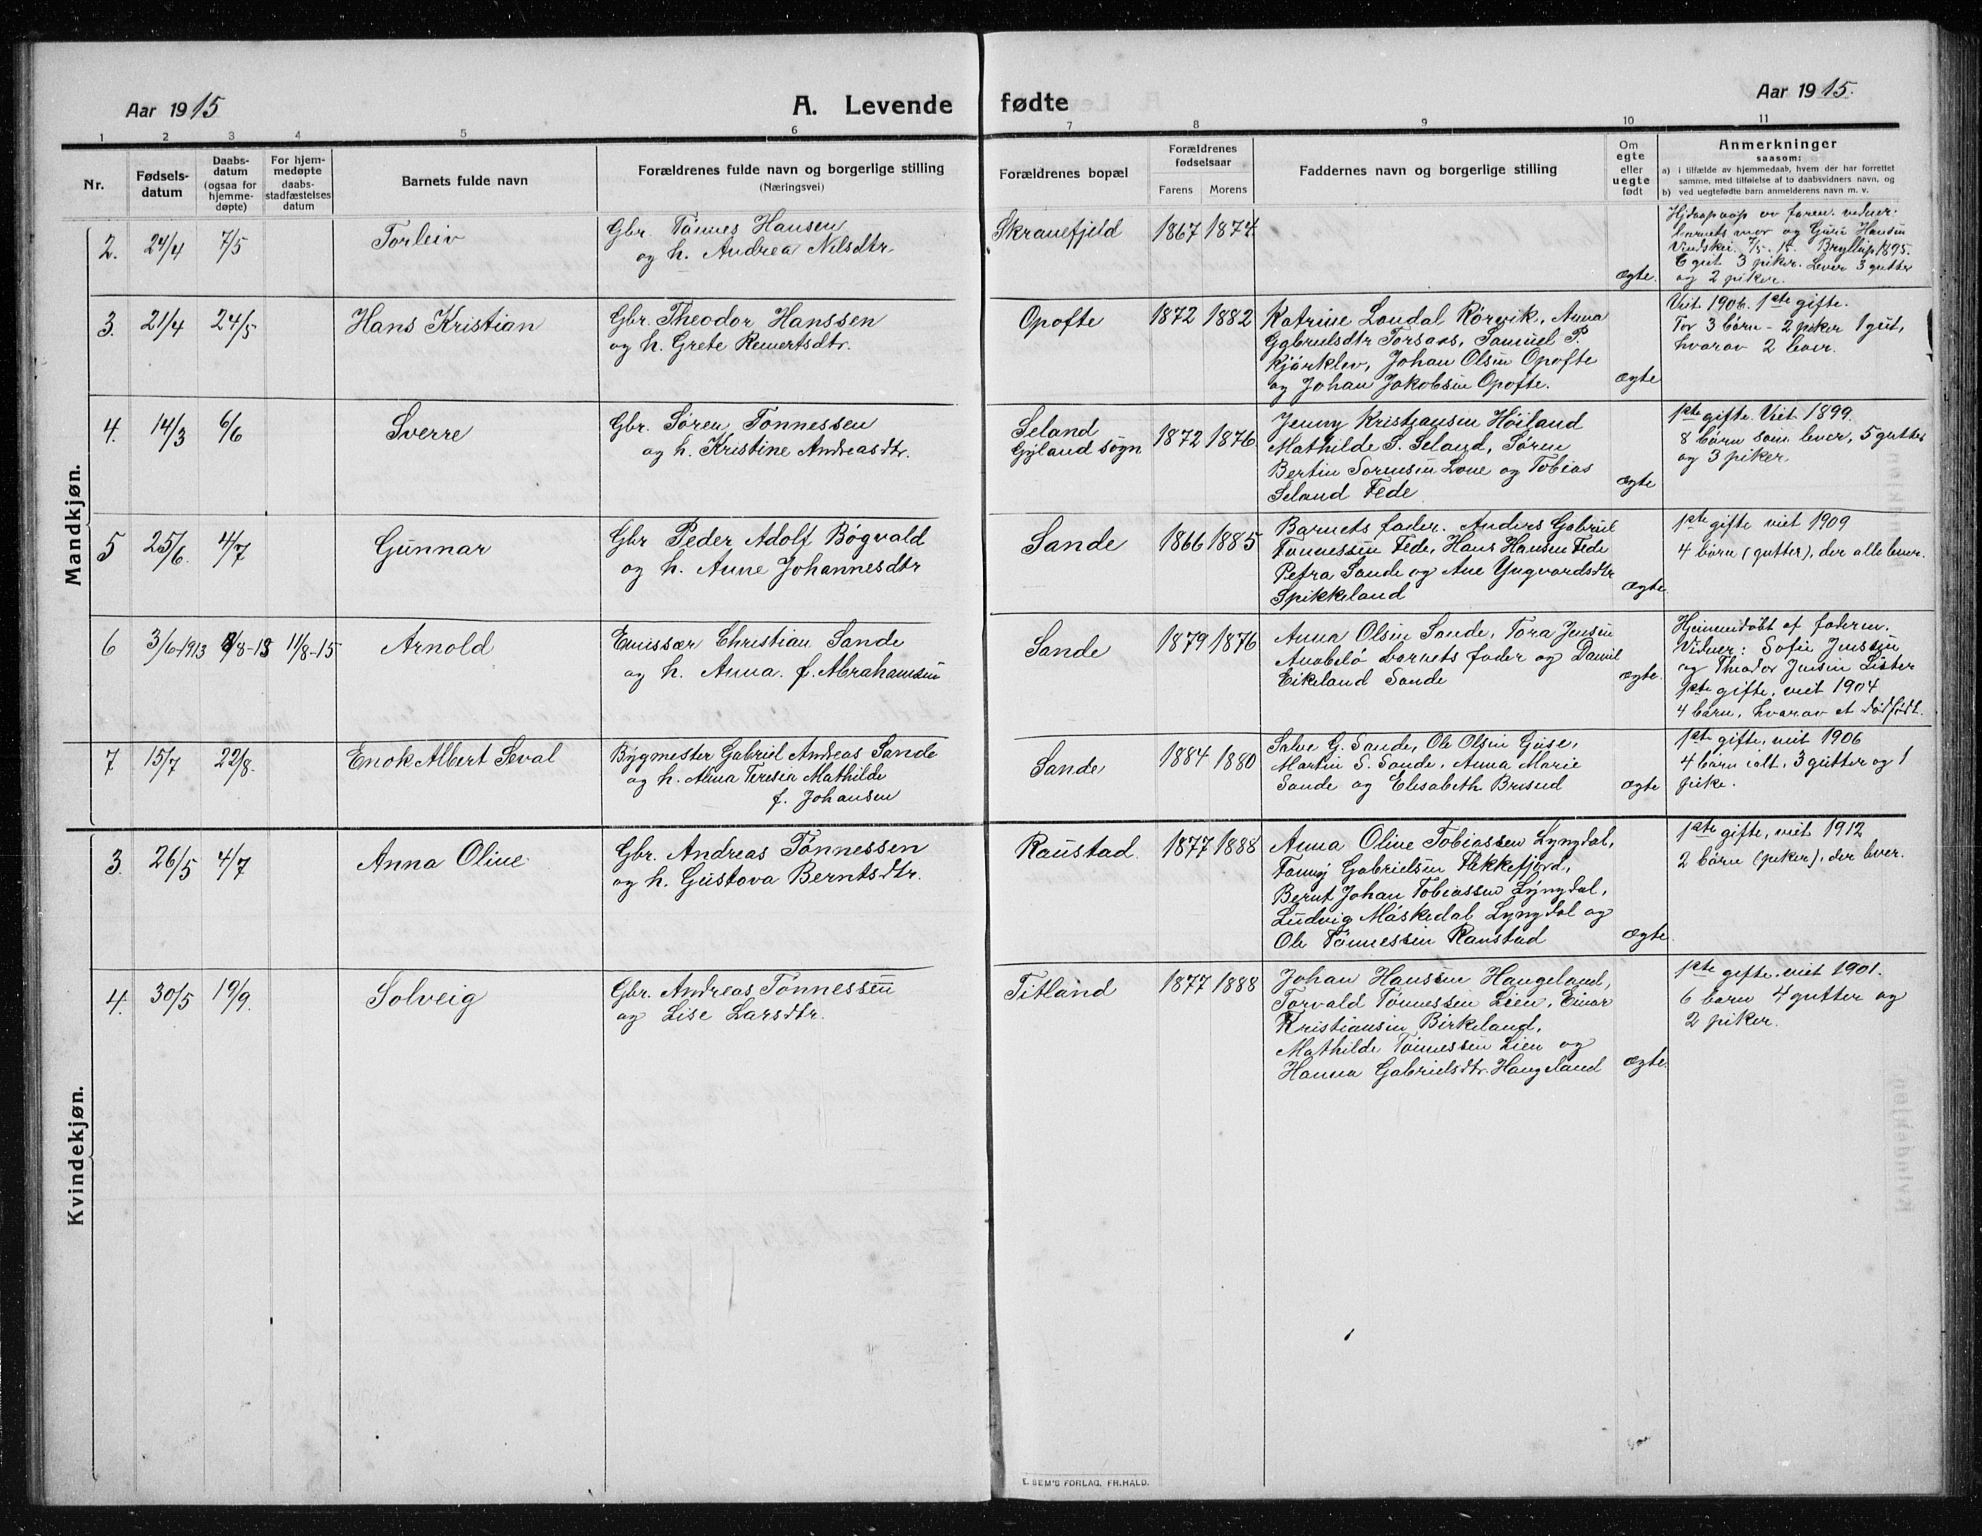 Aar 1915
A. Levende fødte
Aar 1915.
1 2 3 4 5 6 7 8 9 10 11
Nr.
Fødsels-
datum
Daabs-
datum
(ogsaa for
hjemme-
døpte)
For hjem-
medøpte
daabs-
stadfæstelses
datum
Barnets fulde navn
Forældrenes fulde navn og borgerlige stilling
(Næringsvei)
Forældrenes bopæl
Forældrenes
fødselsaar
Farens Morens
Faddernes navn og borgerlige stilling
Om
egte
eller
uegte
født
Anmerkninger
saasom:
a) i tilfælde av hjemmedaab, hvem der har forrettet
samme, med tilføielse af to daabsvidners navn, og
b) ved uegtefødte barn anmelderens navn m. v.
Mandkjøn.
2. 24/4 7/5 Torleiv
Gbr. Tønnes Hansen
og h. Andrea Nilsdtr.
Skranefjeld 1867 1874
ægte.
av faren. vidner:
barnets mor og Guri Hansen
7/5. 15. Bryllup 1895.
6 gut 3 piker. Lever 3 gutter
og 2 piker.
3. 21/4 24/5 Hans Kristian
Gbr. Theodor Hanssen
og h. Grete Reinertsdtr.
Opofte 1872 1882
Katrine Londal Rørvik, Anna
Gabrielsdtr Torsaas, Samuel P.
Kjørklev, Johan Olsen Opofte
og Johan Jakobsen Opofte.
ægte
Viet 1906. 1ste gifte.
Før 3 børn - 2 piker 1 gut,
hvorav 2 lever.
4. 14/3 6/6 Sverre
Gbr. Søren Tønnessen
og h. Kristine Andreasdtr.
Seland
Gyland sogn 1872 1876
Jenny Kristiansen Høiland
Mathilde S. Seland, Søren
Bertin Sørensen Lone og Tobias
Seland Fede
ægte
1ste gifte. Viet 1899.
8 børn som lever, 5 gutter
og 3 piker.
5 25/6. 4/7 Gunnar
Gbr Peder Adolf Bøgvald
og h. Anne Johannesdtr
Sande 1866 1885
Barnets fader. Anders Gabriel
Tønnessen Fede, Hans Hansen Fede
Petra Sande og Ane Yngvardsdtr
Spikkeland
ægte.
1ste gifte viet 1909
4 børn (gutter), der alle lever.
6 3/6 1913 8/8-13 11/8-15 Arnold
Emissær Christian Sande
og h. Anna f. Abrahamsen
Sande 1879 1876
Anna Olsen Sande, Tora Jensen
Anabelø barnets fader og Daniel
Eikeland Sande
ægte.
Hjemmedøbt af faderen.
Vidner: Sofie Jenssen
og Theodor Jensen Lister
1ste gifte, viet 1904
4 børn, hvorav et dødfødt.
7 15/7 22/8. Enok Albert Seval
Bygmester Gabriel Andreas Sande
og h. Anna Teresia Mathilde
f. Johansen
Sande 1884 1880
Salve G. Sande, Ole Olsen Guse,
Martin S. Sande, Anna Marie
Sande og Elisabeth Brisud
ægte
1ste gifte, viet 1906
4 børn ialt, 3 gutter og 1
pike.
Kvindekjøn.
3. 26/5 4/7 Anna Oline
Gbr. Andreas Tønnessen
og h. Gustava Berntsdtr.
Raustad 1877 1888
Anna Oline Tobiassen Lyngdal,
Fanny Gabrielsen Flekkefjord,
Bernt Johan Tobiassen Lyngdal,
Ludvig Møskedal Lyngdal og
Ole Tønnessen Raustad
ægte.
1ste gifte, viet 1912
2 børn (piker), der lever.
4. 30/5 19/9. Solveig
Gbr. Andreas Tønnessen
og Lise Larsdtr.
Titland 1877 1888
Johan Hanssen Haugeland,
Torvald Tønnessen Lien, Einar
Kristiansen Birkeland,
Mathilde Tønnessen Lien og
Hanna Gabrielsdtr. Haugeland
ægte.
1ste gifte. viet 1901.
6 børn 4 gutter og
2 piker.
E. SEM'S FORLAG, FR.HALD.